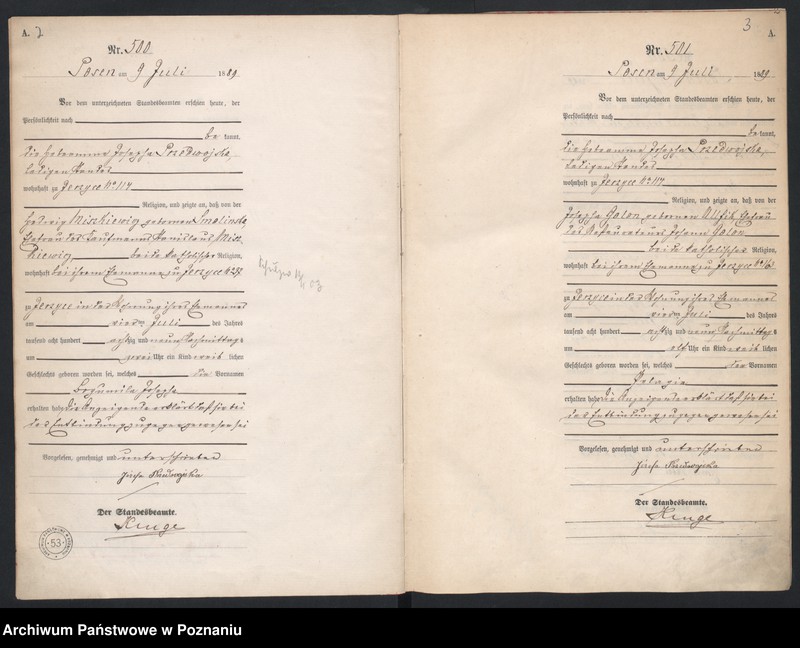 A. 2
Nr. 500
Posen am 9 Juli 1889
Vor dem unterzeichneten Standesbeamten erschien heute, der
Persönlichkeit nach
be kannt,
die Hebamme Josepha
ledigen Standes
wohnhaft zu Jerzyce No 114
Religion, und zeigte an, daß von der
Hedwig Miszkiewicz geborenen Smolinska,
Ehefrau des Kaufmanns Stanislaus Misz-
kiewicz, beide katholischer Religion,
wohnhaft bei ihrem Ehemanne zu Jerzyce
zu Jerzyce in der Wohnung ihres Ehemannes
am vierten Juli des Jahres
tausend acht hundert achtzig und neun Nachmittags
um zwei Uhr ein Kind weib lichen
Geschlechts geboren worden sei, welches die Vornamen
Bogumila Josepha
erhalten habe. Die Anzeigende erklärt daß sie bei
der Entbindung zugegen gewesen sei
Vorgelesen, genehmigt und unterschrieben
Der Standesbeamte.
Kruge
53
3
A.
Nr. 501
Posen am 9 Juli 1889
Vor dem unterzeichneten Standesbeamten erschien heute, der
Persönlichkeit nach
be kannt,
die Hebamme Josepha
ledigen Standes
wohnhaft zu Jerzyce No 114
Religion, und zeigte an, daß von der
Josepha Golon geborenen Ehefrau
des Restaurateurs Johann Golon
beide katholischer Religion,
wohnhaft bei ihrem Ehemanne zu Jerzyce
zu Jerzyce in der Wohnung ihres Ehemannes
am vierten Juli des Jahres
tausend acht hundert achtzig und neun Nachmittags
um elf Uhr ein Kind weib lichen
Geschlechts geboren worden sei, welches den Vornamen
Pelagia
erhalten habe. Die Anzeigende erklärt daß sie bei
der Entbindung zugegen gewesen sei
Vorgelesen, genehmigt und unterschrieben
Der Standesbeamte.
Kruge
Archiwum Państwowe w Poznaniu